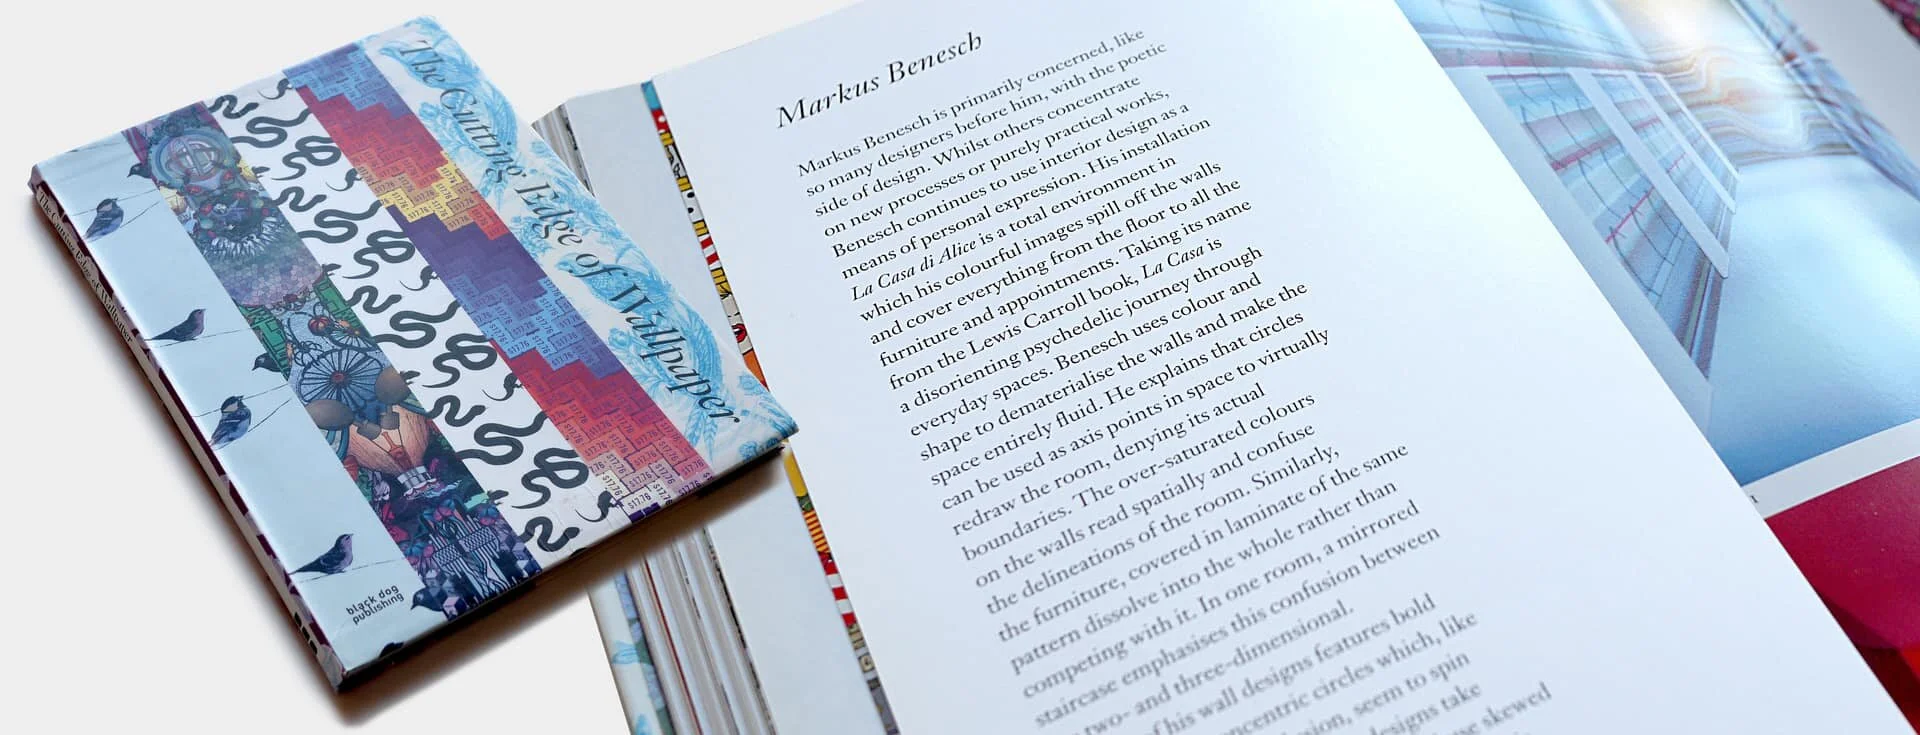 The Cutting Edge of Wallpaper
The Cutting Edge of Wallpaper
black dog
publishing
Markus Benesch
Markus Benesch is primarily concerned, like
so many designers before him, with the poetic
side of design. Whilst others concentrate
on new processes or purely practical works,
Benesch continues to use interior design as a
means of personal expression. His installation
La Casa di Alice is a total environment in
which his colourful images spill off the walls
and cover everything from the floor to all the
furniture and appointments. Taking its name
from the Lewis Carroll book, La Casa is
a disorienting psychedelic journey through
everyday spaces. Benesch uses colour and
shape to dematerialise the walls and make the
space entirely fluid. He explains that circles
can be used as axis points in space to virtually
redraw the room, denying its actual
boundaries. The over-saturated colours
on the walls read spatially and confuse
the delineations of the room. Similarly,
the furniture, covered in laminate of the same
pattern dissolve into the whole rather than
competing with it. In one room, a mirrored
staircase emphasises this confusion between
two- and three-dimensional.
of his wall designs features bold
concentric circles which, like
seem to spin
designs take
skewed